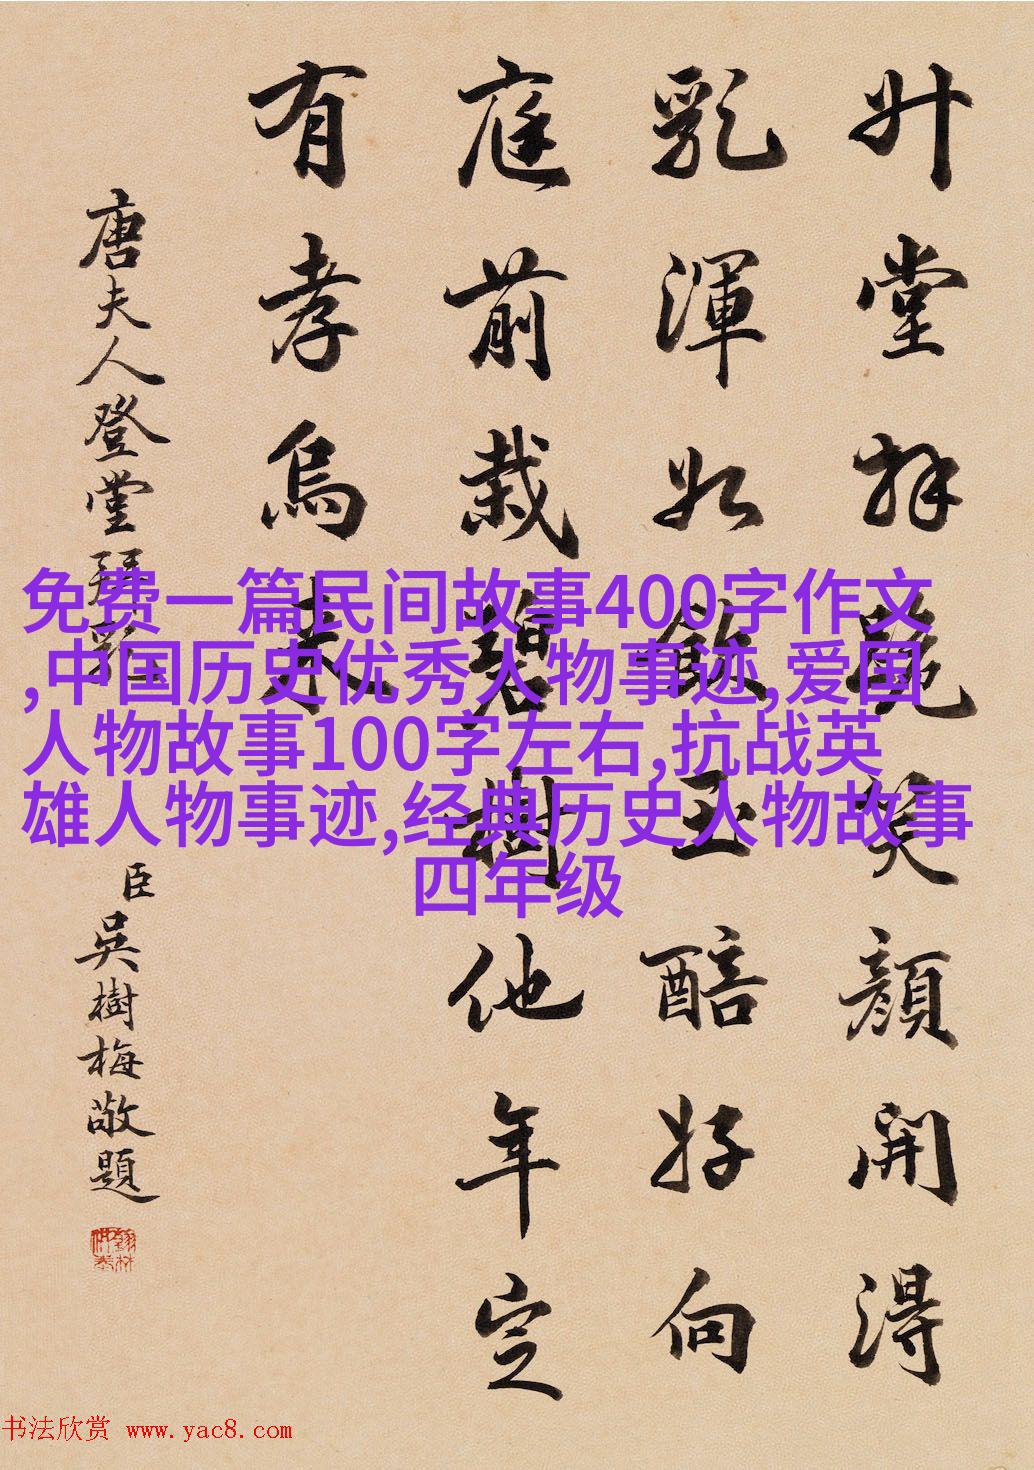 升堂拜罷笑顏開得
乳渾如飲玉醅好向
庭前栽碧樹他年定
有孝烏來
唐夫人登堂乳
臣吳樹梅敬題
免费一篇民间故事400字作文
,中国历史优秀人物事迹,爱国
人物故事100字左右,抗战英
雄人物事迹,经典历史人物故事
四年级
书法欣赏 www.yac8.com